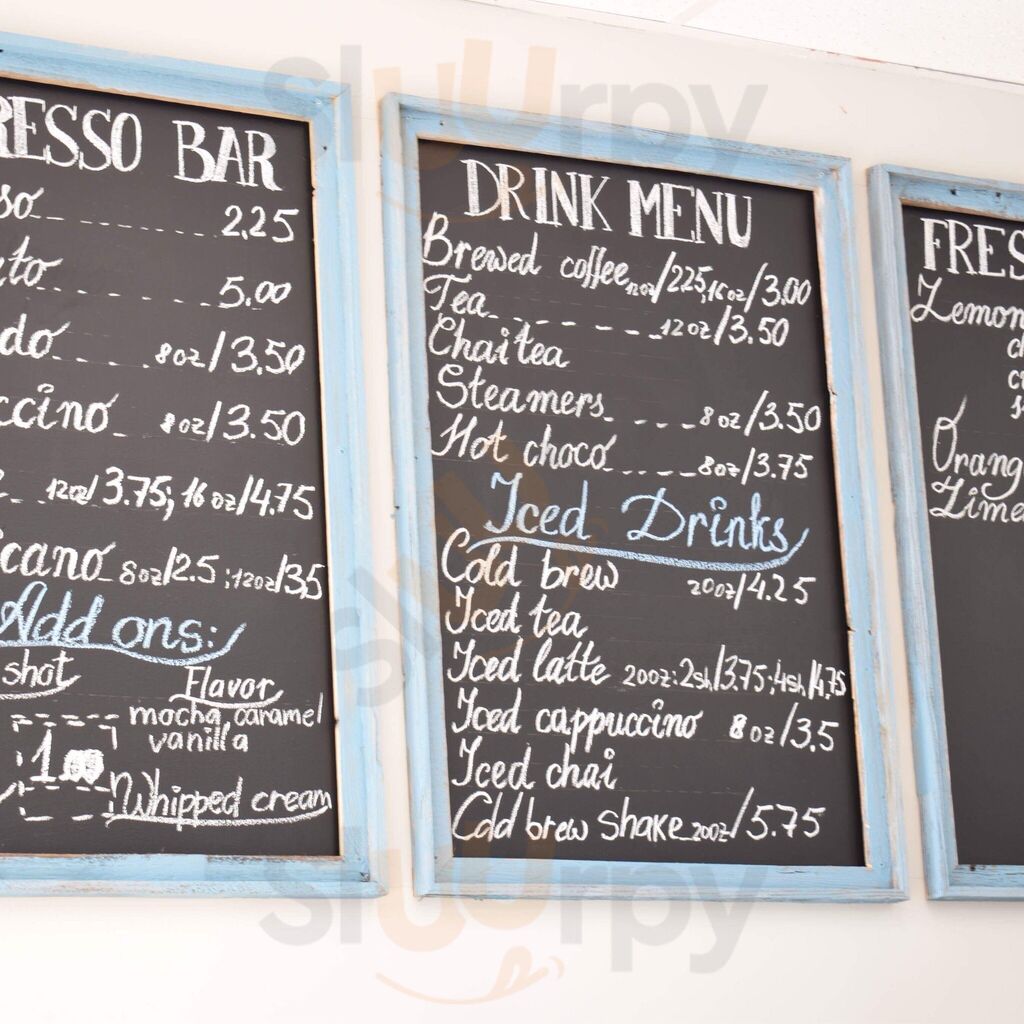 RESSO BAR
so 2,25
to 5.00
do 8oz/3.50
ccino 8oz/3.50
12oz/3.75; 16oz/4.75
cano 8oz/2.5 ; 12oz/3,5
Add ons:
shot
Flavor
mocha, caramel
vanilla
1.00
Whipped cream
DRINK MENU
Brewed coffee 12oz/2.25, 16oz/3.00
Tea 12oz/3.50
Chai tea
Steamers 8oz/3.50
Hot choco 8oz/3.75
Iced Drinks
Cold brew 20oz/4.25
Iced tea
Iced latte 20oz: 2sh/3.75; 4sh/4.75
Iced cappuccino 8oz/3.5
Iced chai
Cold brew shake 20oz/5.75
FRES
Lemon
Orang
Lime
slUUrpy
slUUrpy